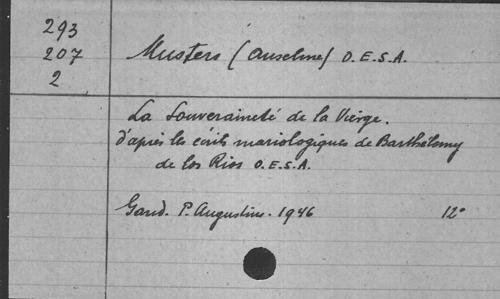 293
207
2
Musters (Anselme) O.E.S.A.
La Souveraineté de la Vierge.
d'après les écrits mariologiques de Barthélemy
de los Rios O.E.S.A.
Gand. P. Augustins. 1946 12°